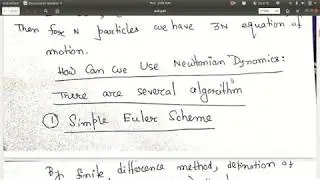 Then for N particles we have 3N equation of
motion.
How Can we Use Newtonian Dynamics:
There are several algorithm
① Simple Euler Scheme
By finite difference method, definition of